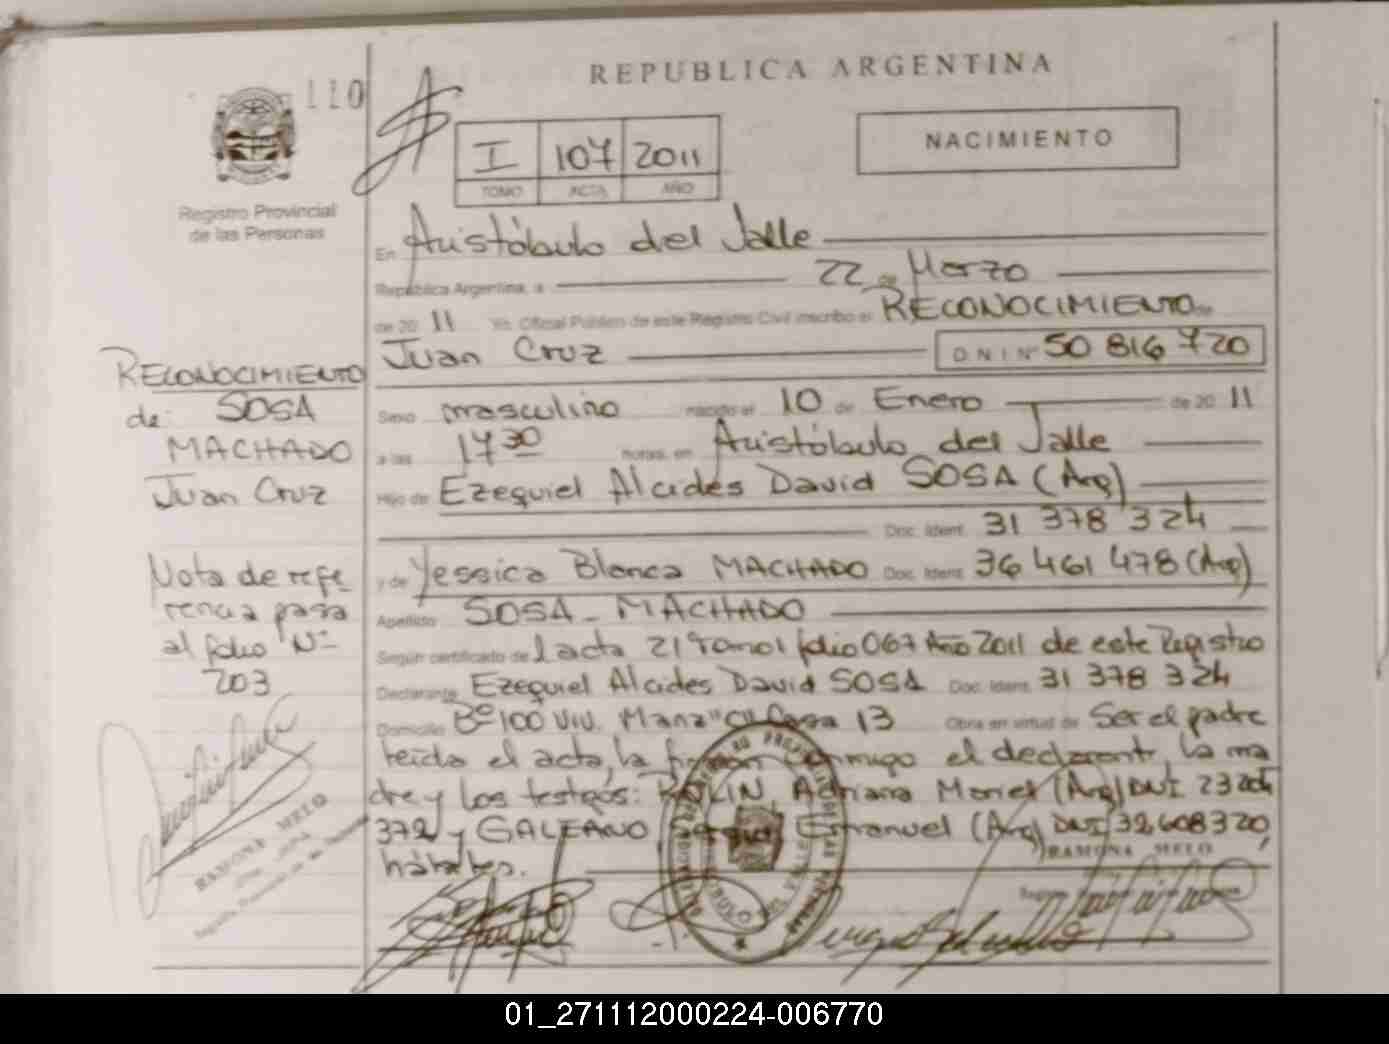 REPUBLICA ARGENTINA
110
NACIMIENTO
I 107 2011
TOMO ACTA AÑO
Registro Provincial
de las Personas
En Aristóbulo del Valle
República Argentina, a 22 de Marzo
de 20 11 Yo, Oficial Público de este Registro Civil inscribo el RECONOCIMIENTO de
Juan Cruz D.N.I. Nº 50 816 720
Sexo masculino nacido el 10 de Enero de 20 11
a las 17 30 horas, en Aristóbulo del Valle
Hijo de Ezequiel Alcides David SOSA (Arg)
Doc. Ident. 31 378 324
y de Yessica Blanca MACHADO Doc. Ident. 36 461 478 (Arg)
Apellido SOSA - MACHADO
Según certificado de acta 21 Tomo I folio 067 Año 2011 de este Registro
Declarante Ezequiel Alcides David SOSA Doc. Ident. 31 378 324
Domicilio Bº 100 Viv. Casa 13 Obra en virtud de Ser el padre
leída el acta, la conmigo el declarante, la ma
dre y los testigos: Adriana (Arg) DNI 23 204
372 y GALEANO Emanuel (Arg) DNI 32608320,
hábiles.
RAMONA MELO
RECONOCIMIENTO
de: SOSA
MACHADO
Juan Cruz
Nota de refe
rencia pasa
al folio Nº
203
RAMONA MELO
01_271112000224-006770